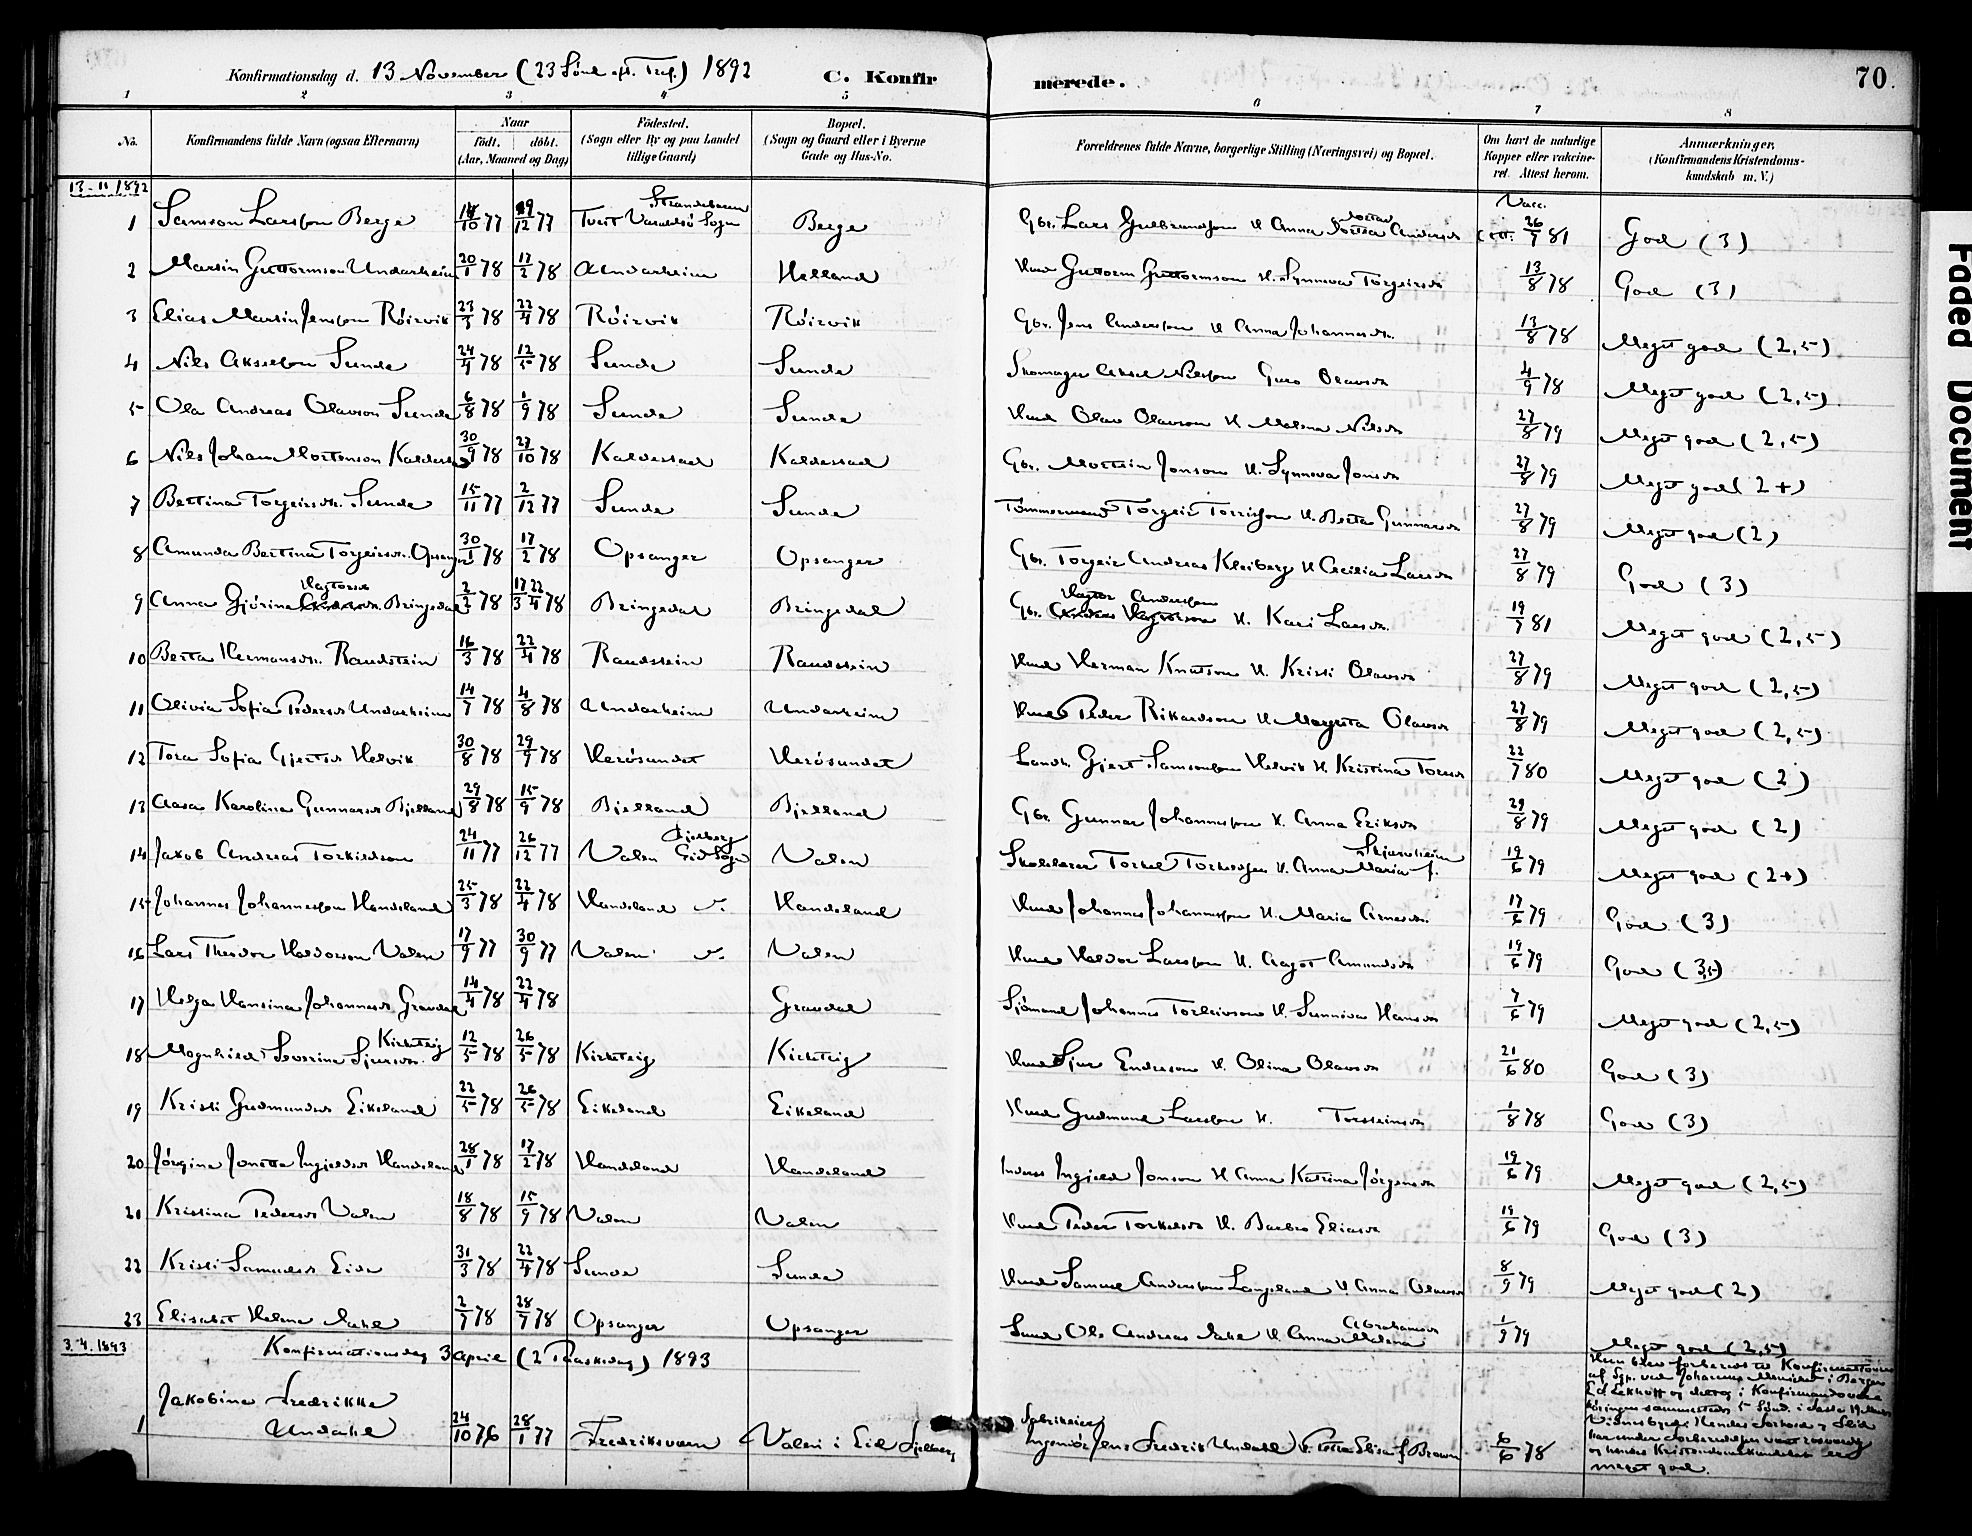 Konfirmationsdag d. 13 November (23 Sönd eft. Tref.) 1892 C. Konfirmerede. 70.
1 2 3 4 5 6 7 8
No. Konfirmandens fulde Navn (ogsaa Efternavn) Naar födt. döbt. (Aar, Maaned og Dag) Födested. (Sogn eller By og paa Landet tillige Gaard) Bopæl. (Sogn og Gaard eller i Byerne Gade og Hus-No. Forældrenes fulde Navne, borgerlige Stilling (Næringsvei) og Bopæl. Om havt de naturlige Kopper eller vaccineret. Attest herom. Anmærkninger. (Konfirmandens Kristendomskundskab m. V.)
13-11 1892
1 Samson Larsson Berge 10 77 29/12 77 Tveit Varaldsö Sogn Strandebarm Berge Gbr. Lars Gulbrandsson H Anna Andersd Vacc. 26/7 81 God (3)
2 Martin Guttormson Undarheim 20/1 78 17/2 78 Undarheim Helland Hmd Guttorm Guttormsson H. Synneva Torgeirsd 13/8 78 God (3)
3 Elias Martin Jensson Röirvik 23/3 78 22/4 78 Röirvik Röirvik Gbr. Jens Andersson H Anna Johannesd. 13/8 78 Meget god (2,5)
4 Nils Akselson Sunde 24/4 78 12/5 78 Sunde Sunde Skomager Aksel Nilsson Guro Olavsd 4/9 78 Meget god (2,5)
5 Ola Andreas Olavson Sunde 6/8 78 1/9 78 Sunde Sunde Hmd Olav Olavson H Malena Nilsd 27/8 79 Meget god (2,5)
6 Nils Johan Mortenson Kaldestad 30/9 78 27/10 78 Kaldestad Kaldestad Gbr. Mortein Jonson H. Synneva Jonsd 27/8 79 Meget god (2+)
7 Bertina Torgeirsdr. Sunde 15/11 77 2/12 77 Sunde Sunde Tömmermand Torgeir Torrisson H. Berta Gunnarsd 27/8 79 Meget god (2)
8 Amunda Bertina Torgeirsd. Opsanger 30/1 78 17/2 78 Opsanger Opsanger Gbr. Torgeir Andreas Kleiberg H Cecilia Larsd 27/8 79 God (3)
9 Anna Gjörina Hagtorsd Bringedal 2/2 78 17/3 22/4 78 Bringedal Bringedal Gbr. Hagtor Andersson H. Kari Larsd. 19/7 81 Meget god (2,5)
10 Berta Hermansdr. Raudstein 16/3 78 22/4 78 Raudstein Raudstein Hmd Herman Knutson H. Kristi Olavsd 27/8 79 Meget god (2,5)
11 Olivia Sofia Pedersd Undarheim 14/7 78 4/8 78 Undarheim Undarheim Hmd Peder Rikardson H. Magreta Olavsd 27/8 79 Meget god (2,5)
12 Tora Sofia Gjertsd Helvik 30/8 78 29/9 78 Herösundet Herösundet Landh. Gjert Samsonson Helvik H. Kristina Toresd 22/7 80 Meget god (2)
13 Aasa Karolina Gunnarsd Bjelland 29/8 78 15/9 78 Bjelland Bjelland Gbr. Gunnar Johannesson H. Anna Eriksd 29/8 79 Meget god (2)
14 Jakob Andreas Torkildson 24/11 77 26/12 77 Valen Eid Sogn Fjelberg Valen Skolelærer Torkel Torkelson H. Anna Maria f. Skjærsheim 19/6 79 Meget god (2+)
15 Johannes Johannesson Handeland 25/3 78 22/4 78 Handeland Handeland Hmd Johannes Johannesson H. Maria Arnesd. 17/6 79 God (3)
16 Lars Theodor Haldorson Valen 17/9 77 30/9 77 Valen Valen Hmd Haldor Larsson H. Aagot Amundsd 19/6 79 God (3,5)
17 Helga Hansina Johannesd Gravdal 14/4 78 22/4 78 Gravdal Sjömand Johannes Torleivson H. Sunniva Hansd 7/6 79 Meget god (2,5)
18 Magnhild Severina Sjursd. Kirketeig 12/5 78 26/5 78 Kirketeig Kirketeig Hmd Sjur Endreson H. Olina Olavsd 21/6 80 God (3)
19 Kristi Gudmundsd Eikeland 22/5 78 26/5 78 Eikeland Eikeland Hmd Gudmund Larsson H. Torsteinsd 1/8 78 God (3)
20 Jörgina Jonetta Ingjeldsd Handeland 28/1 78 17/2 78 Handeland Handeland Inderst Ingjeld Jonson H Anna Katrina Jörgensd 19/6 79 Meget god (2,5)
21 Kristina Pedersd Valen 18/8 78 15/9 78 Valen Valen Hmd Peder Torkelson H. Barbro Eliasd 19/6 79 God (3)
22 Kristi Samuelsd Eide 31/3 78 22/4 78 Sunde Sunde Hmd Samuel Andersson Langeland H. Anna Olavsd 8/9 79 Meget god (2)
23 Elisabet Helene Dahl 2/7 78 28/7 78 Opsanger Opsanger Ole Andreas Dahl H Anna Malena Abrahamsd 1/9 79 Meget god (2,5)
3.4.1893 Konfirmationsdag 3 April (2 Paaskedag) 1893
1 Jakobine Fredrikke Undahl 24/10 76 28/1 77 Fredriksværn Valen i Eid Fjelberg Fabrikeier Ingeniör Jens Fredrik Undahl H. Elise f Brown 6/6 78
Hun blev forberedt til Konfirmationen
af Sgp. ved Johannes Menighed i Bergen
og deltog i Konfirmandoverhöringen sammesteds
Vidnesbyrd: Hendes Forhold og Flid
har under Forberedelsen været rosværdig
og hendes Kristendomskundskab er
meget god.
Faded Document